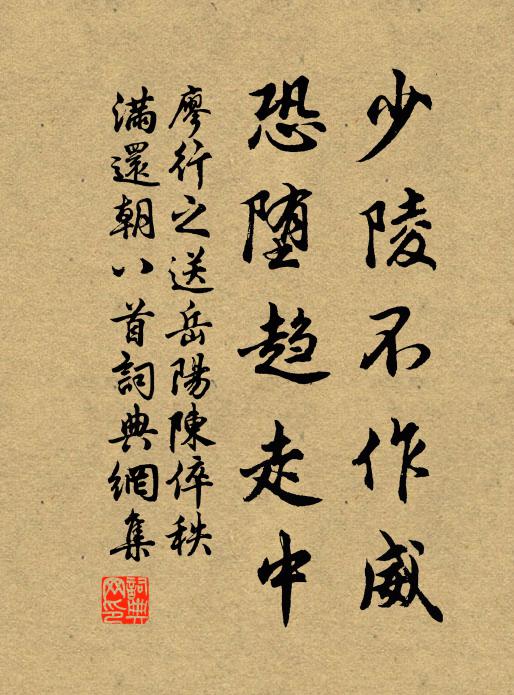 少陵不作威
恐堕趋走中
廖行之送岳陽陳倅秩
滿還朝八首詞典網集
詞典
网印